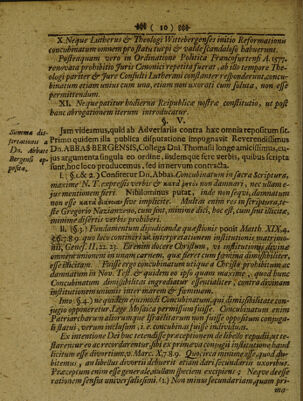 ( 10 )
X. Neque Lutherus & Theologi Wittebergenses initio Reformationis
concubinatum omnem pro statu turpi & valde scandaloso habuerunt.
Postquam vero in Ordinatione Politica Francfurtensi A. 1577.
renovata prohibitio Juris Canonici repetita fuerat, ab illo tempore Theo-
logi pariter & Jure Consulti Lutherani constanter responderunt, concu-
binatum etiam unius cum uno, etiam non uxorati cum soluta, non esse
permittendum.
XI. Neque patitur hodierna Reipublicæ nostræ constitutio, ut post
hanc abrogationem iterum introducatur.
§. V.
Summa dis-
sertationis
Dn. Abbas
Bergensi op-
posita,
Jam videamus, quid ab Adversariis contra hæc omnia repositum sit.
Primo quidem illa publica disputatione impugnavit Reverendissimus
Dn. ABBAS BERGENSIS, Collega Dni. Thomasii longe amicissimus, cu-
jus argumenta singula eo ordine, iisdemque fere verbis, quibus scripta
sunt, hoc loco producemus, sed in nervum contracta.
I. (§. 1. & 2.) Confitetur Dn. Abbas. Concubinatum in sacra Scriptura,
maxime N. T. expressis verbis & κατὰ ῥητὸν non damnari, nec ullam e-
jus mentionem fieri. Nihilominus putat, inde non sequi, damnatum
non esse κατὰ διάνοιαν sive implicite. Multas enim res in scriptura, te-
ste Gregorio Nazianzeno, cum sint, minime dici, hoc est, cum sint illicitæ,
minime disertis verbis prohiberi.
II. (§. 3.) Fundamentum dijudicandæ quæstionis ponit Matth. XIX. 4.
5. 6. 7. 8. 9. una hoc loco et interpretamentum institutionis matrimo-
nii, Genes. II. 22. 23. Etenim docere Christum, vi institutionis divinæ
omnem unionem in unam carnem, quæ fieret cum fœmina dimissibiliter,
esse illicitam. Fuisse ergo concubinatum utique a Christo prohibitum ac
damnatum in Nov. Test. & quidem eo ipso quam maxime, quod hunc
Concubinatum dimissibilitas ingrediatur essentialiter, contra divinam
institutionem unionis inter marem & fœminam.
Imo (§. 4.) ne quidem ejusmodi Concubinatum, qui dimissibilitate con-
jugio opponeretur, Lege Mosaica permissum fuisse. Concubinatum enim
Patriarcharum aliorumque Israëlitarum non fuisse oppositum conjuga-
li statui, verum inclusum, i. e. concubinas fuisse individuas.
Ex intentione Dei huc tetendisse præceptionem de libello repudii, ut te-
starentur eo ac recordarentur, sibi ex primæva conjugii institutione haud
licitum esse divortium, v. Marc. X. 7. 8. 9. Quo circa minime esse, quod du-
bitemus, an libellus divortii debuerit etiam dari secundariis uxoribus.
Præceptum enim esse generale, nullam speciem excipiens; Neque deesse
rationem sensus universalissimi. (1.) Non minus secundariam, quam pri-
ma